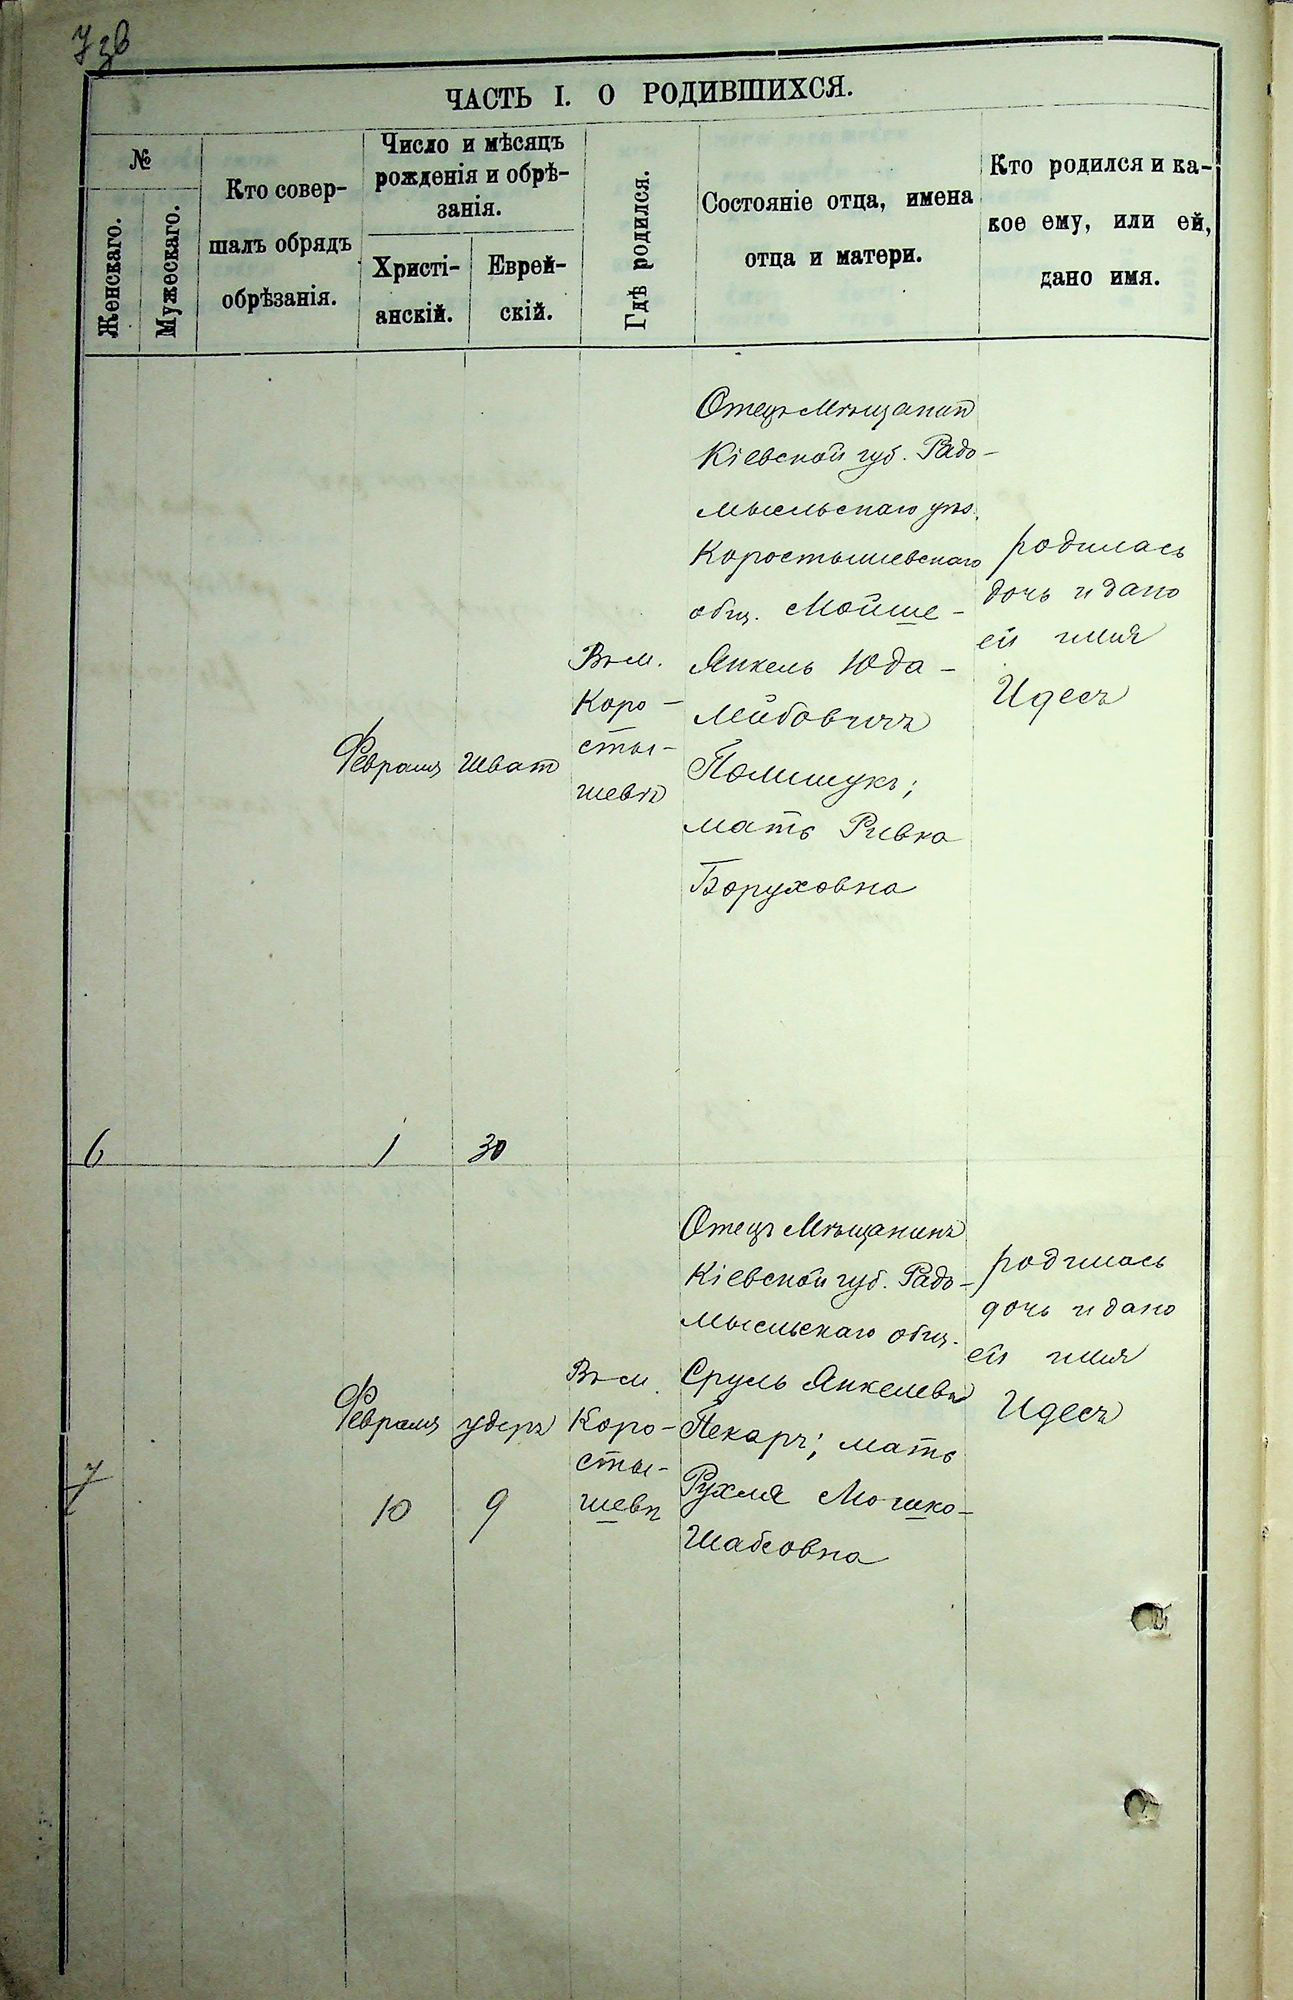 7 зв
ЧАСТЬ I. О РОДИВШИХСЯ.
№
Женскаго.
Мужескаго.
Кто совер-
шалъ обрядъ
обрѣзанія.
Число и мѣсяцъ
рожденія и обрѣ-
занія.
Христі-
анскій.
Еврей-
скій.
Гдѣ родился.
Состояніе отца, имена
отца и матери.
Кто родился и ка-
кое ему, или ей,
дано имя.
6
Февраля
1
Шват
30
Въ м.
Коро-
сты-
шевѣ
Отецъ Мѣщанин
Кіевской губ. Радо-
мысльскаго уѣз.
Коростышевскаго
общ. Мойше-
Янкель Юда-
Лейбовичъ
Полищукъ;
мать Ривка
Боруховна
родилась
дочь и дано
ей имя
Идесъ
7
Февраля
10
удеръ
9
Въ м.
Коро-
сты-
шевѣ
Отецъ Мѣщанинъ
Кіевской губ. Радо-
мысльскаго общ.
Сруль Янкелевъ
Пекарь; мать
Рухля Мошко-
Шабсовна
родилась
дочь и дано
ей имя
Идесъ